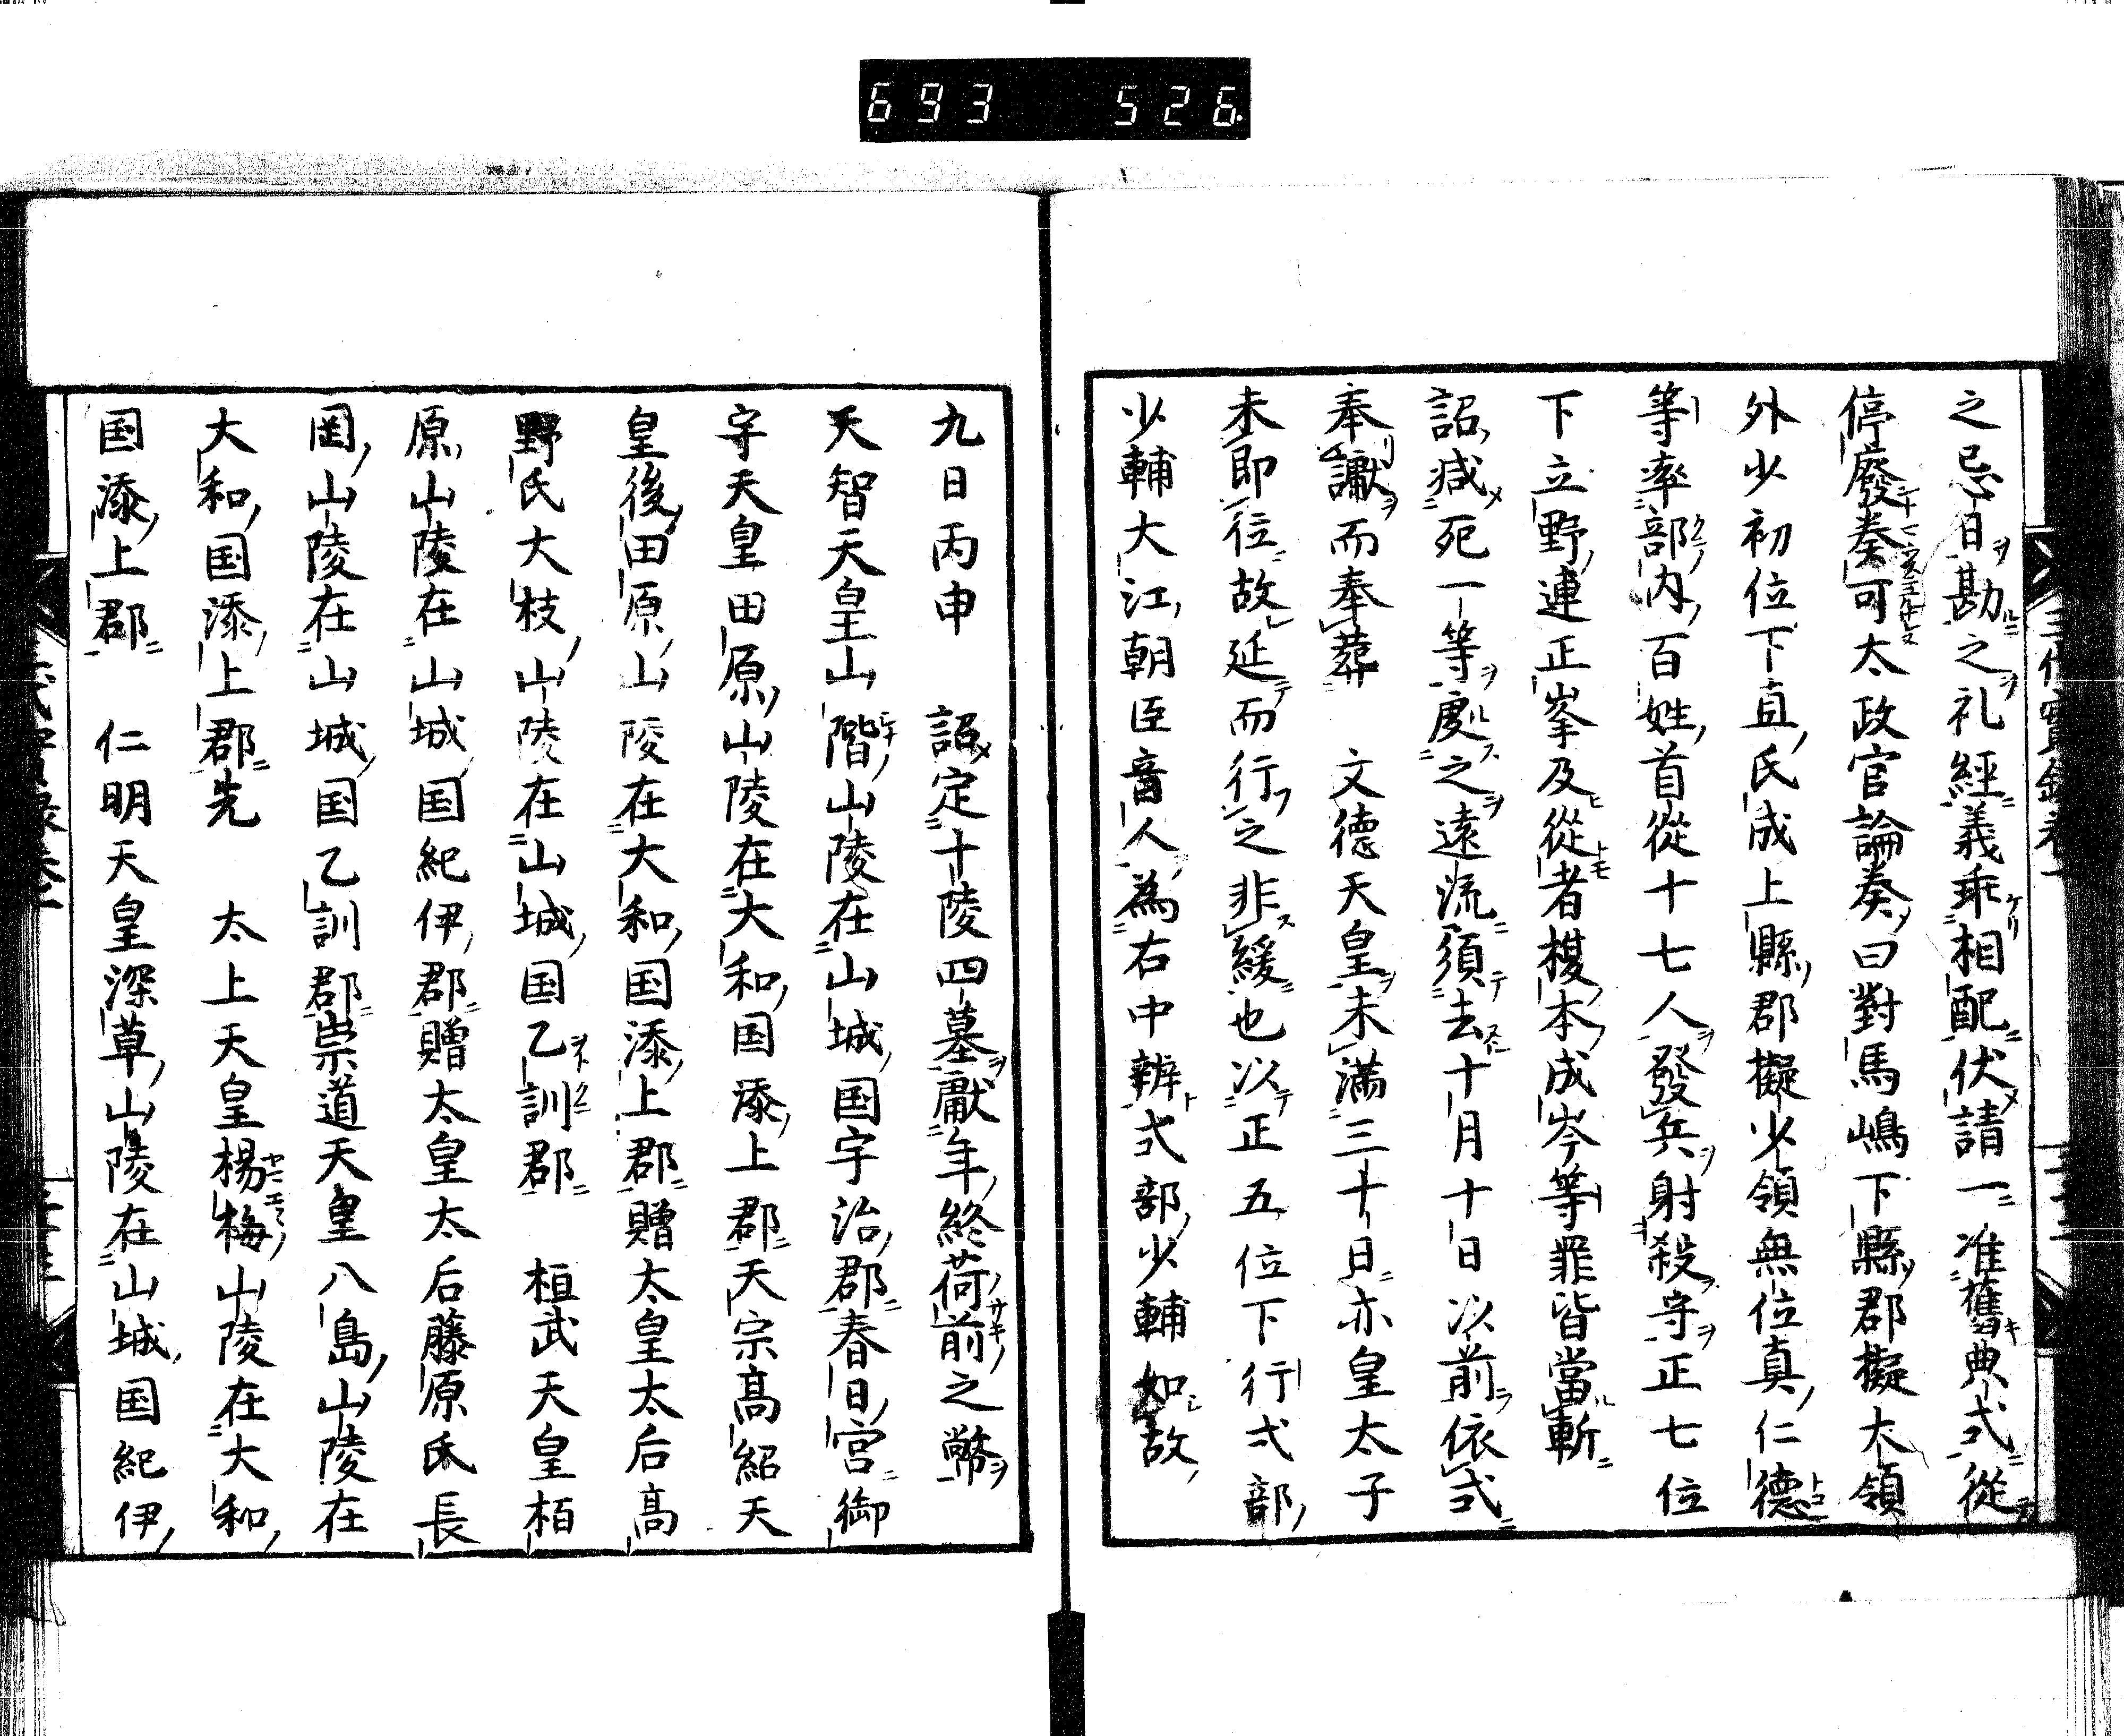 693 526
之忌日勘之礼經義乖相配伏請一准舊典式從
停廢奏可太政官論奏曰對馬嶋下縣郡擬大領
外少初位下直氏成上縣郡擬少領無位直仁德
等率部内百姓首從十七人發兵射殺守正七位
下立野連正岑及從者榎本成岑等罪皆當斬
詔减死一等處之遠流須去十月十日以前依式
奉讞而奉葬　文德天皇未滿三十日亦皇太子
未即位故延而行之非緩也以正五位下行式部
少輔大江朝臣音人為右中辨式部少輔如故
九日丙申　詔定十陵四墓獻年終荷前之幣
天智天皇山階山陵在山城国宇治郡春日宮御
宇天皇田原山陵在大和国添上郡天宗髙紹天
皇後田原山陵在大和国添上郡贈太皇太后髙
野氏大枝山陵在山城国乙訓郡　桓武天皇柏
原山陵在山城国紀伊郡贈太皇太后藤原氏長
岡山陵在山城国乙訓郡崇道天皇八島山陵在
大和国添上郡先　太上天皇楊梅山陵在大和
国添上郡　仁明天皇深草山陵在山城国紀伊